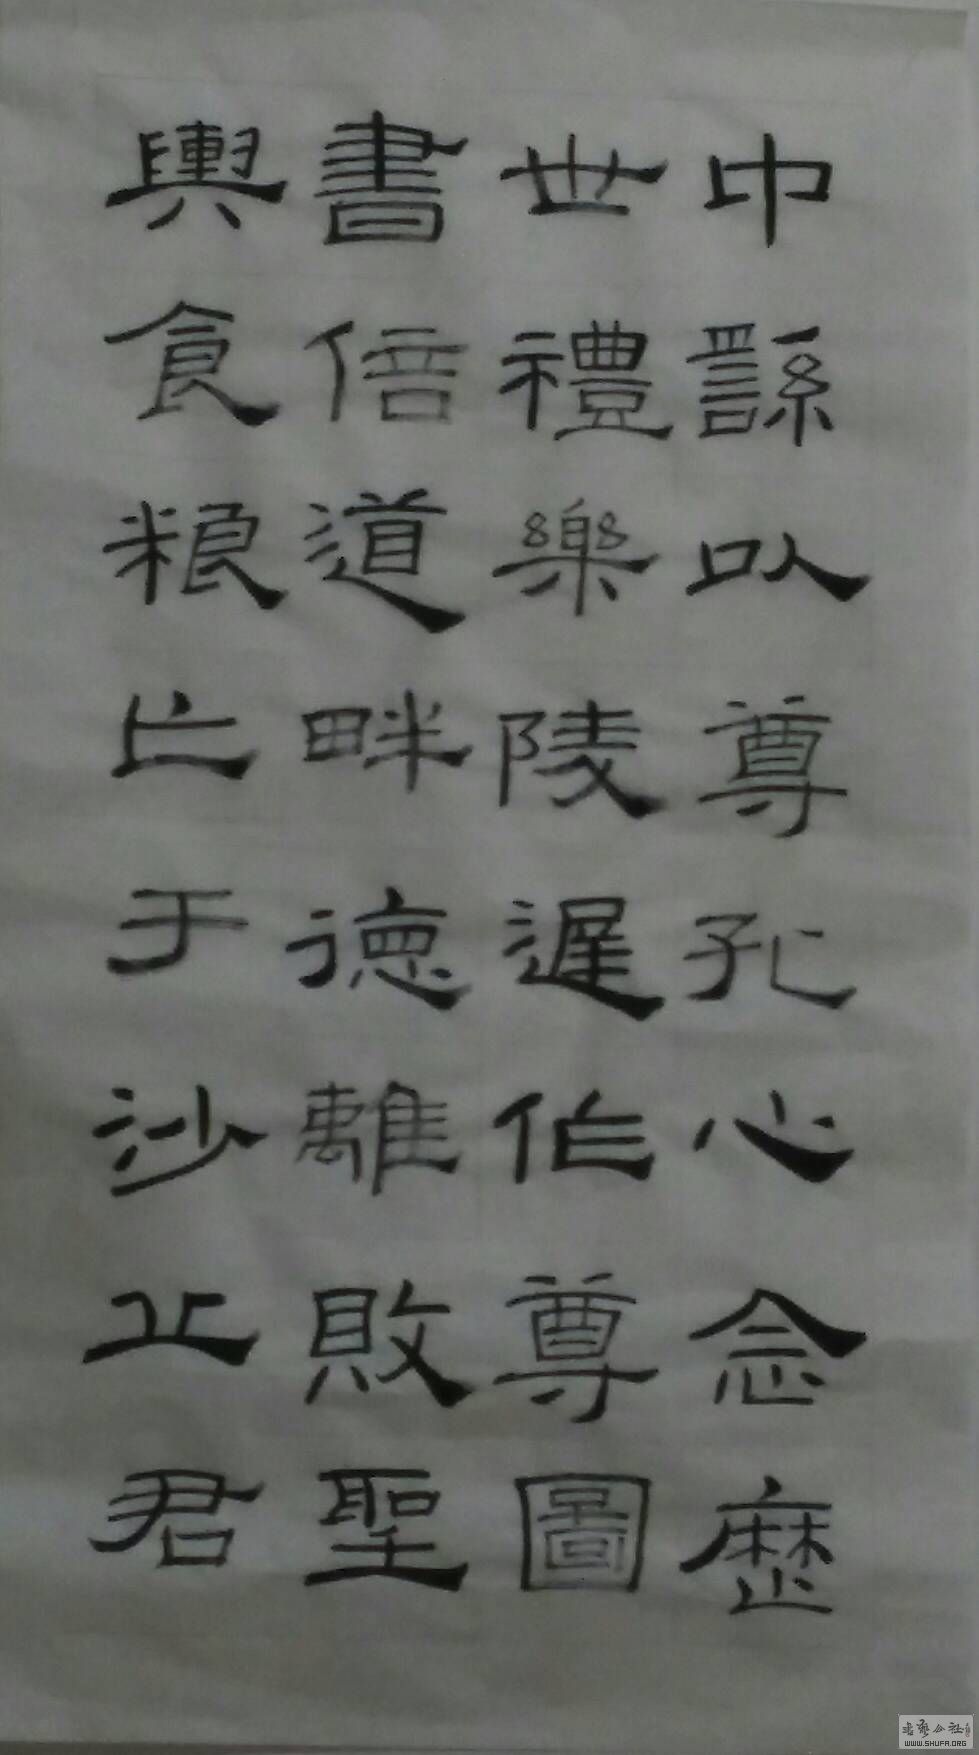 中繇以尊孔心念歷
世禮樂陵遲作尊圖
書倍道畔德離敗聖
輿食粮亡于沙丘君
书艺公社
WWW.SHUFA.ORG